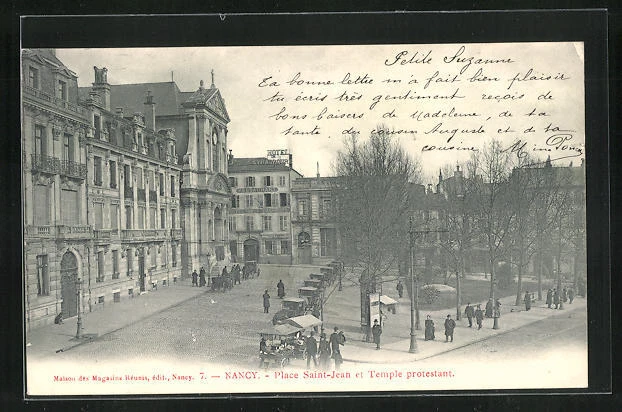 Petite Suzanne
Ta bonne lettre m'a fait bien plaisir
tu écris très gentiment reçois de
bons baisers de Madeleine, de ta
tante du cousin Auguste et de ta
cousine
HOTEL
RESTAURANT
Maison des Magasins Réunis, édit., Nancy. 7. — NANCY. - Place Saint-Jean et Temple protestant.